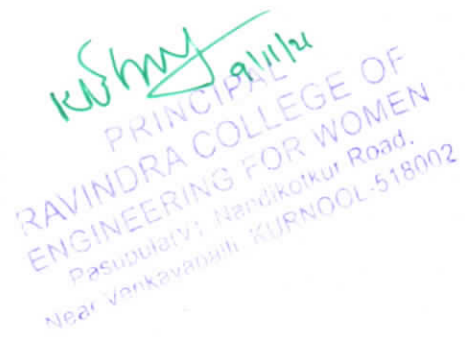 9/11/21
PRINCIPAL
RAVINDRA COLLEGE OF
ENGINEERING FOR WOMEN
Nandikotkur Road,
Near Venkayapalli, KURNOOL-518002